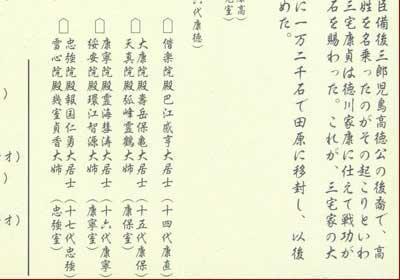 臣備後三郎児島高徳公の後裔で、高
姓を名乗ったのがその起こりといわ
三宅康貞は徳川家康に仕えて戦功が
石を賜わった。これが、三宅家の大
に一万二千石で田原に移封し、以後
めた。
康高
六代康徳)
楽院殿巴江盛亨大居士 (十四代康直
大康院殿壽岳保亀大居士 (十五代康保
天真院殿孤峰霊鶴大姉 (康保室)
康寧院殿霊海彗涛大居士 (十六代康寧
綏安院殿環江智源大姉 (康寧室)
忠強院殿報国仁勇大居士 (十七代忠強
雪心院殿幾室貞香大姉 (忠強室)
オ)
)
オ)